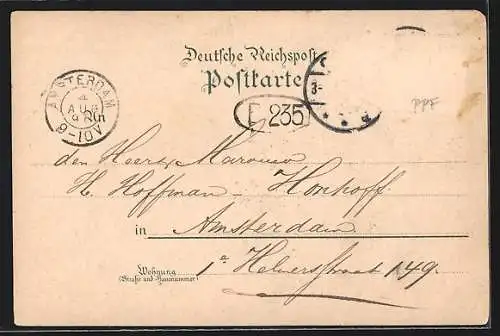 Deutsche Reichspost
Postkarte
AMSTERDAM
4
AUG
9-10V
F 235
3-
PPF
den Heer
H. Hoffman - Honhoff
in Amsterdam
Wohnung
(Straße und Hausnummer)
1e Helmersstraat 149.